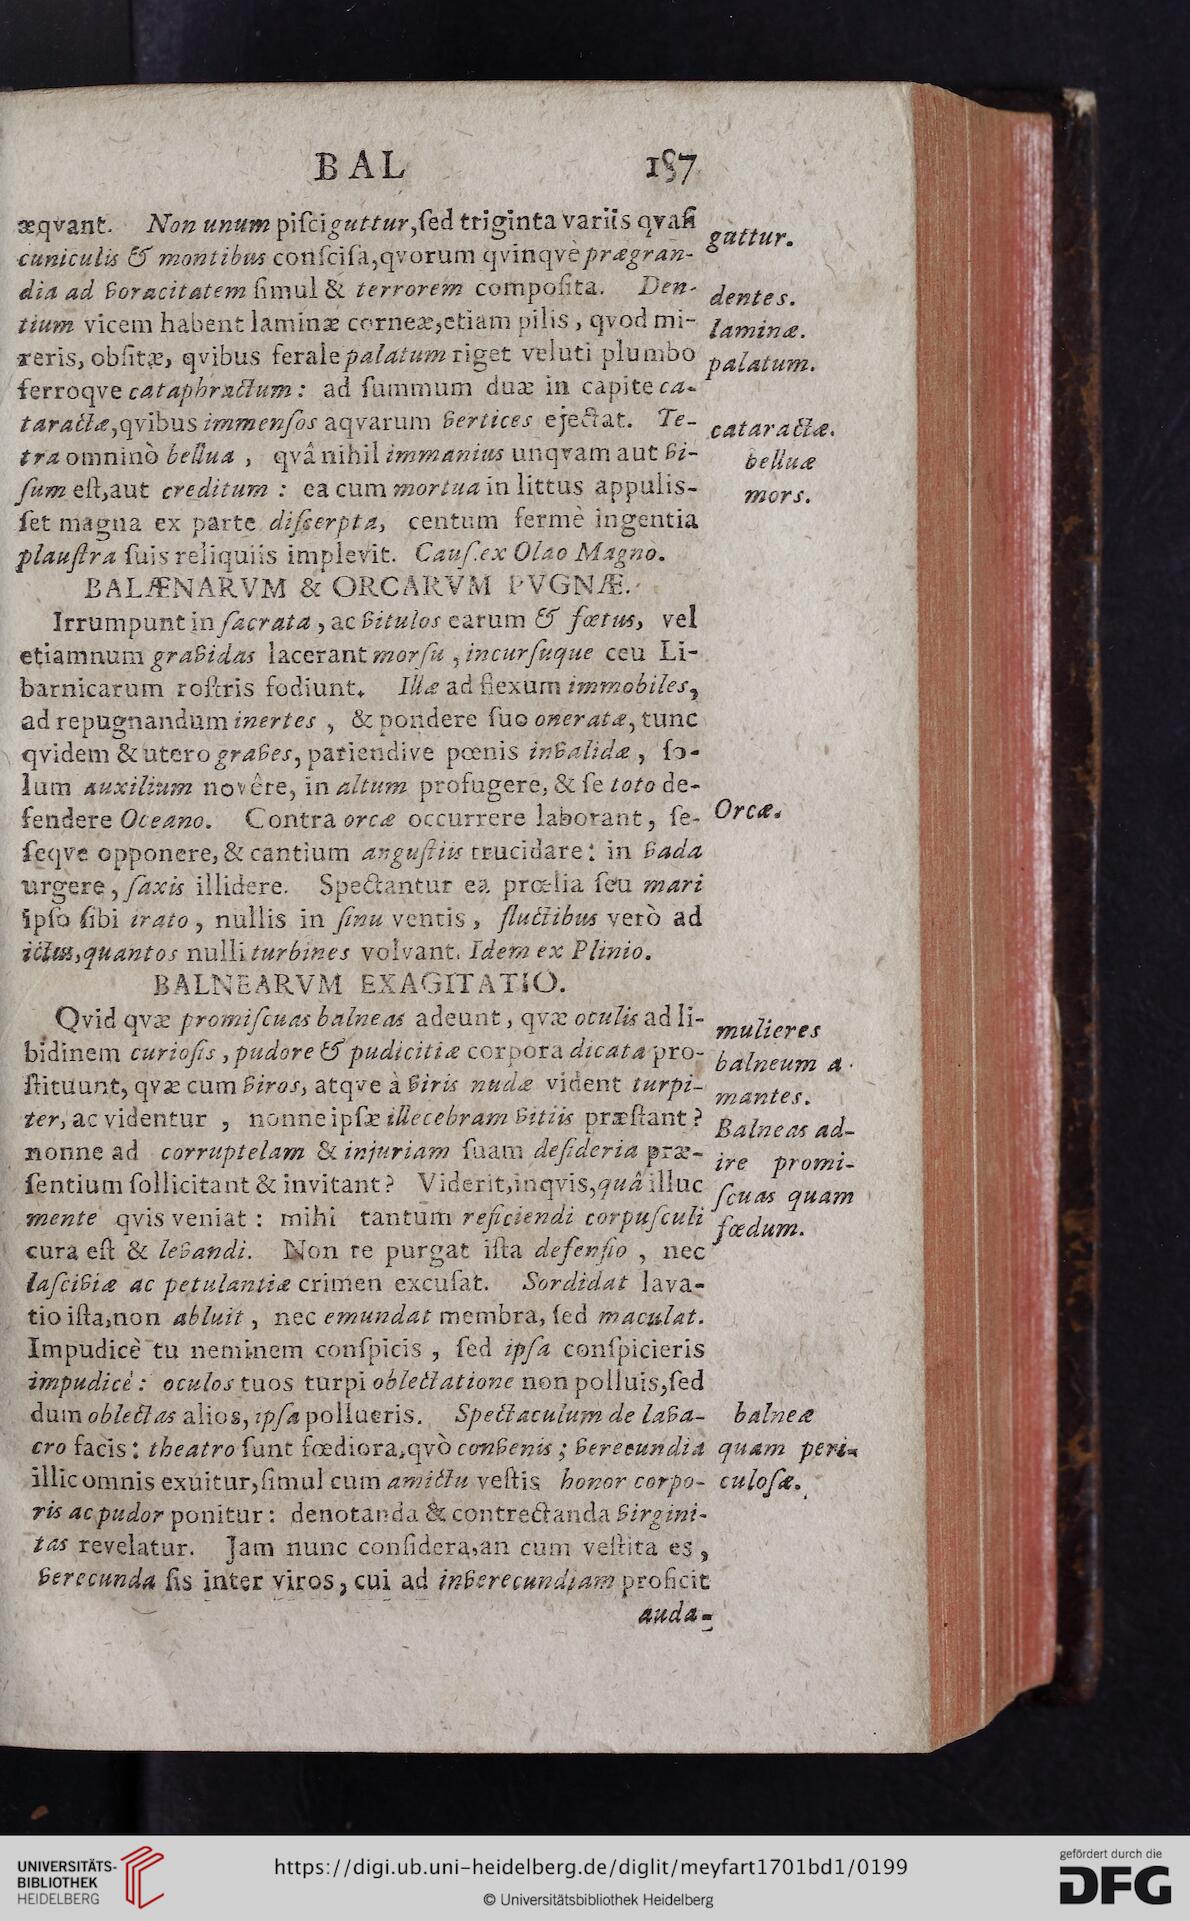 BAL 187
æqvant. Non unum piſci guttur, ſed triginta variis qvaſi
cuniculis & montibus conſciſa, qvorum qvinqvè prægran-
dia ad voracitatem ſimul & terrorem compoſita. Den-
tium vicem habent laminæ corneæ, etiam pilis, qvod mi-
reris, obſitæ, qvibus ferale palatum riget veluti plumbo
ferroqve cataphractum: ad ſummum duæ in capite ca-
taractæ, qvibus immenſos aqvarum vertices ejectat. Te-
tra omninò bellua, qvâ nihil immanius unqvam aut vi-
ſum eſt, aut creditum: ea cum mortua in littus appuliſ-
ſet magna ex parte diſcerpta, centum fermè ingentia
plauſtra ſuis reliquiis implevit. Cauſ. ex Olao Magno.
BALÆNARVM & ORCARVM PVGNÆ.
Irrumpunt in ſacrata, ac vitulos earum & fœtus, vel
etiamnum gravidas lacerant morſu, incurſuque ceu Li-
barnicarum roſtris fodiunt. Illæ ad flexum immobiles,
ad repugnandum inertes, & pondere ſuo oneratæ, tunc
qvidem & utero graves, pariendive pœnis invalidæ, ſo-
lum auxilium novêre, in altum profugere, & ſe toto de-
fendere Oceano. Contra orcæ occurrere laborant, ſe-
ſeqve opponere, & cantium anguſtiis trucidare: in vada
urgere, ſaxis illidere. Spectantur ea prœlia ſeu mari
ipſo ſibi irato, nullis in ſinu ventis, fluctibus verò ad
ictus, quantos nulli turbines volvant. Idem ex Plinio.
BALNEARVM EXAGITATIO.
Qvid qvæ promiſcuas balneas adeunt, qvæ oculis ad li-
bidinem curioſis, pudore & pudicitiæ corpora dicata pro-
ſtituunt, qvæ cum viros, atqve à viris nudæ vident turpi-
ter, ac videntur, nonne ipſæ illecebram vitiis præſtant?
nonne ad corruptelam & injuriam ſuam deſideria præ-
ſentium ſollicitant & invitant? Viderit, inqvis, quâ illuc
mente qvis veniat: mihi tantum reficiendi corpuſculi
cura eſt & levandi. Non te purgat iſta defenſio, nec
laſciviæ ac petulantiæ crimen excuſat. Sordidat lava-
tio iſta, non abluit, nec emundat membra, ſed maculat.
Impudicè tu neminem conſpicis, ſed ipſa conſpicieris
impudicè: oculos tuos turpi oblectatione non polluis, ſed
dum oblectas alios, ipſa pollueris. Spectaculum de lava-
cro facis: theatro ſunt fœdiora, qvò convenis; verecundia
illic omnis exuitur, ſimul cum amictu veſtis honor corpo-
ris ac pudor ponitur: denotanda & contrectanda virgini-
tas revelatur. Jam nunc conſidera, an cum veſtita es,
verecunda ſis inter viros, cui ad inverecundiam proficit
auda-
guttur.
dentes.
laminæ.
palatum.
cataractæ.
belluæ
mors.
Orcæ.
mulieres
balneum a-
mantes.
Balneas ad-
ire promi-
ſcuas quam
fœdum.
balneæ
quam peri-
culoſæ.
UNIVERSITÄTS-
BIBLIOTHEK
HEIDELBERG
https://digi.ub.uni-heidelberg.de/diglit/meyfart1701bd1/0199
© Universitätsbibliothek Heidelberg
gefördert durch die
DFG